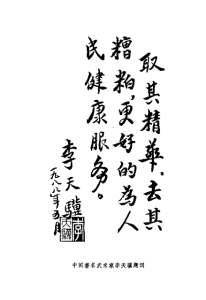 取其精华,去其
糟粕,更好的为人
民健康服务。
李天骥
一九八八年五月
中国著名武术家李天骥题词